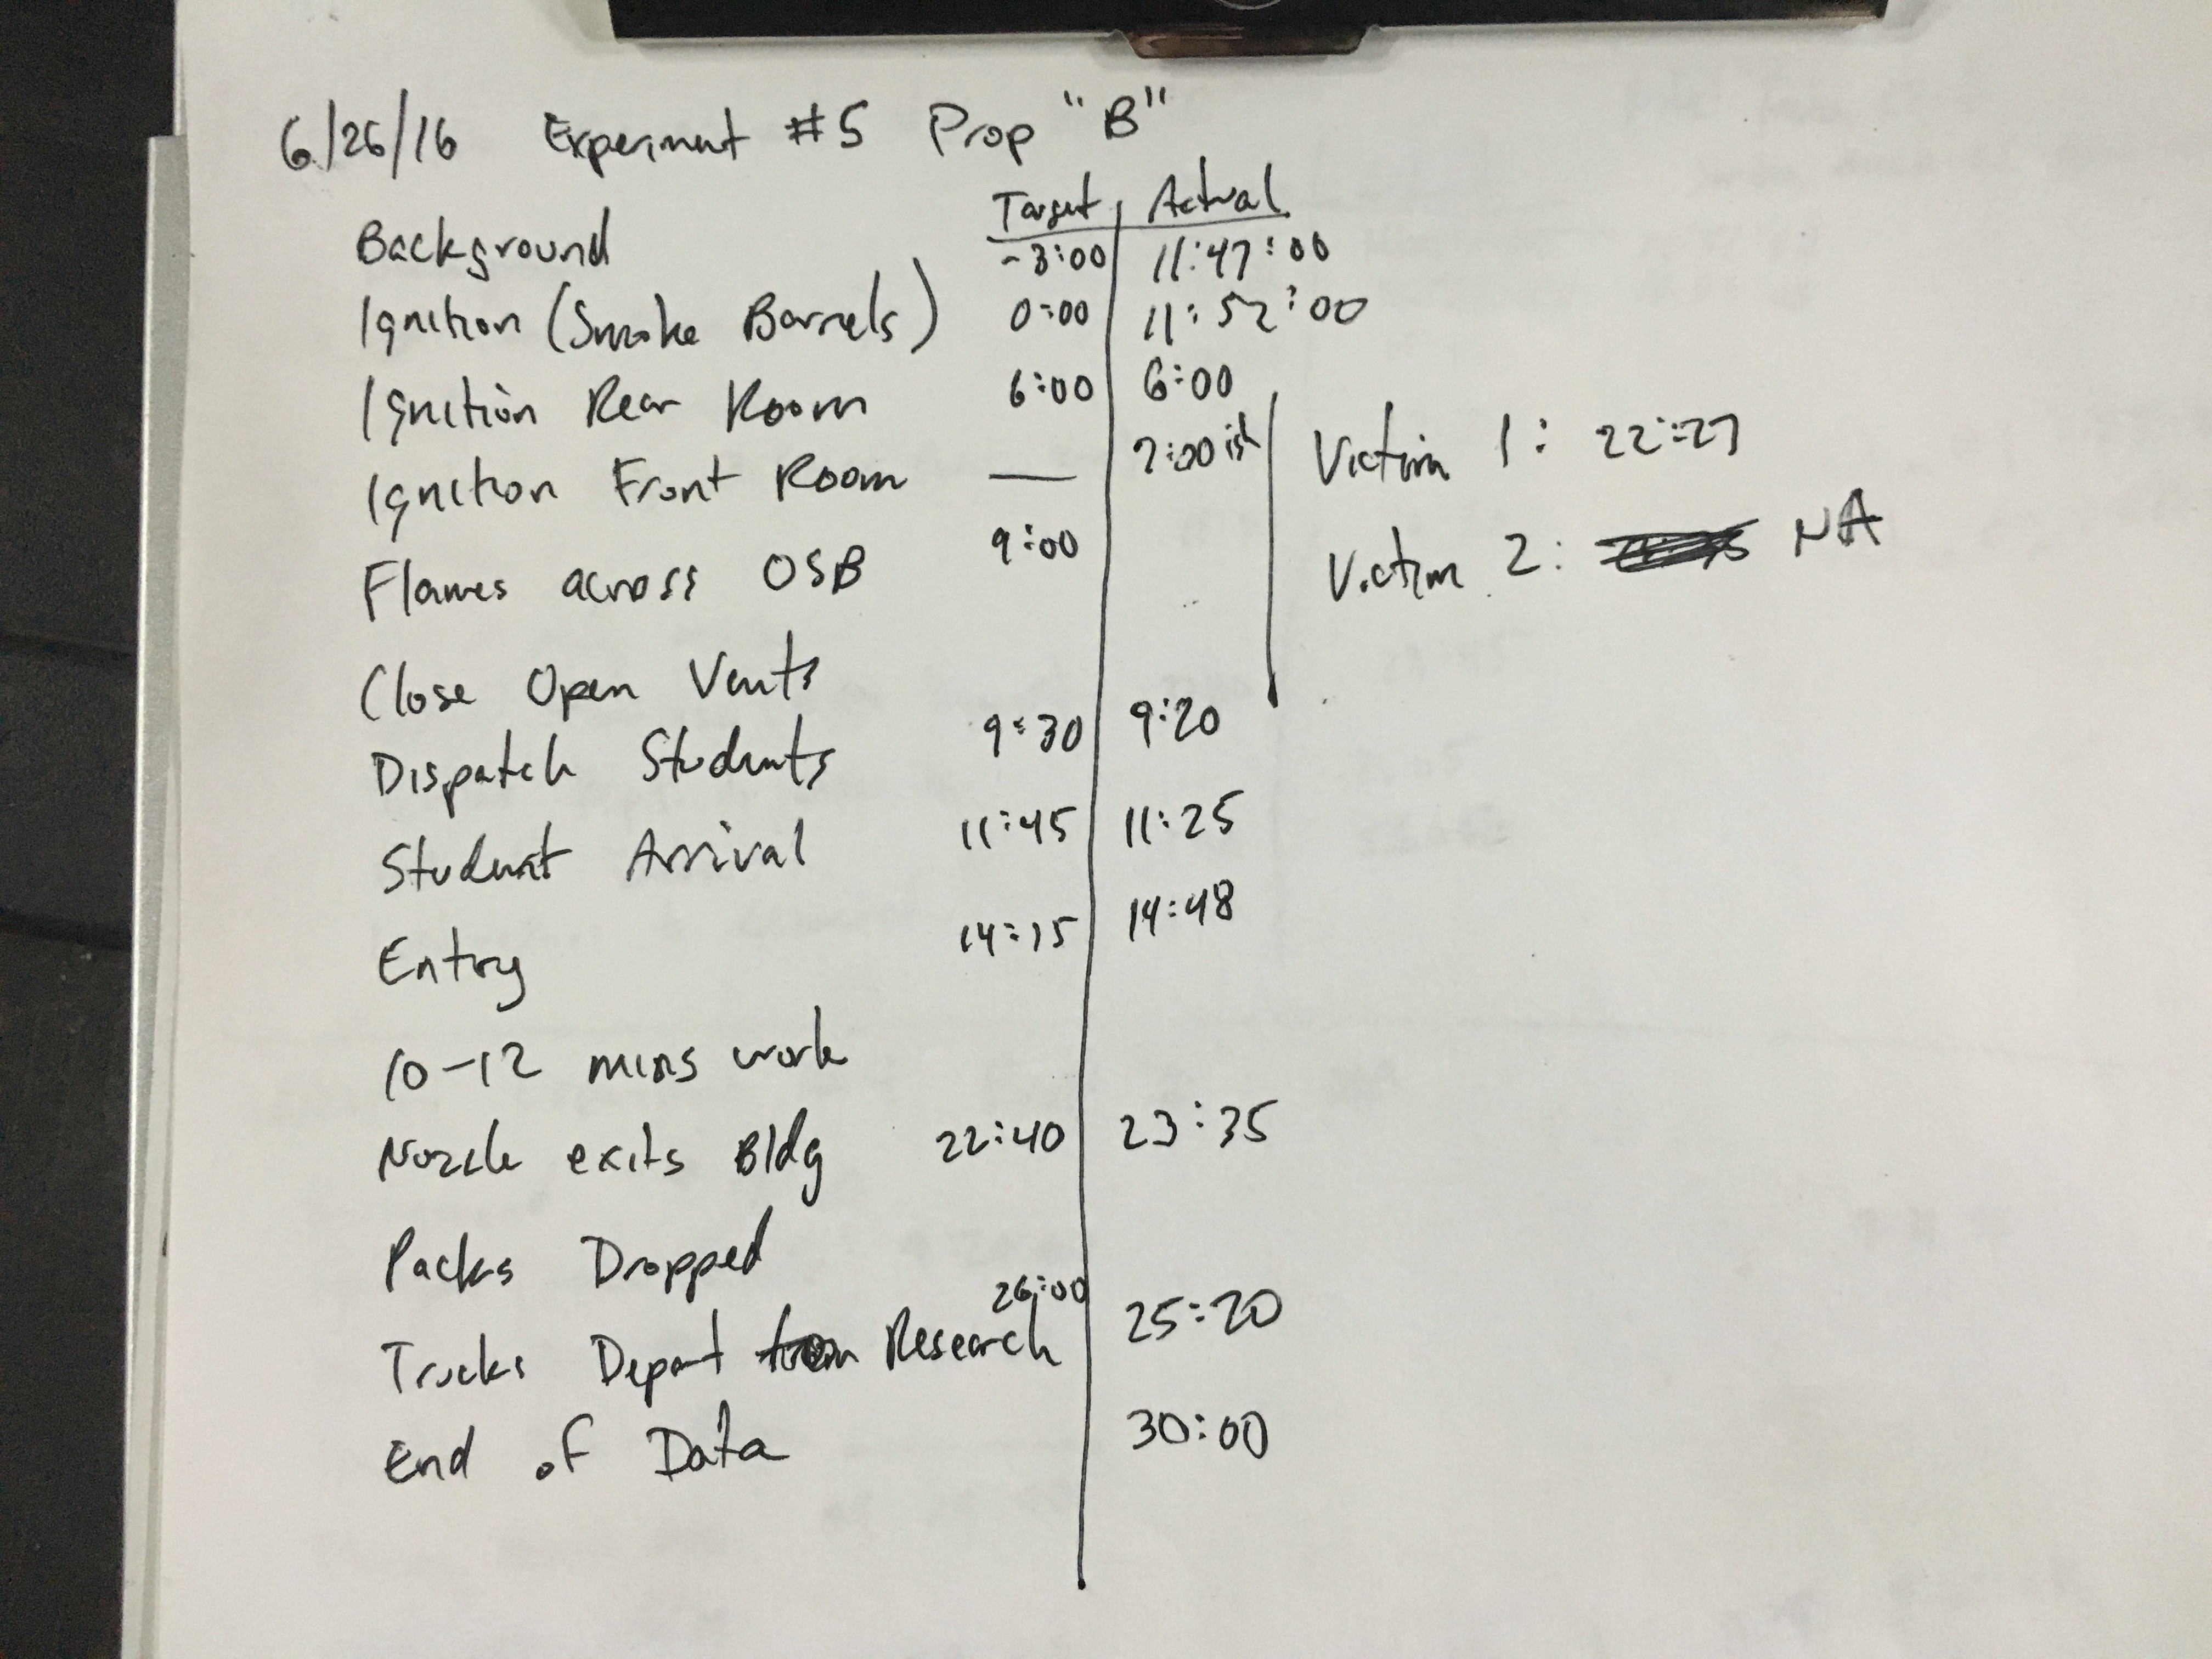 6/26/16 Experiment #5 Prop "B"
Target Actual
Background -3:00 11:47:00
Ignition (Smoke Barrels) 0:00 11:52:00
Ignition Rear Room 6:00 6:00
Ignition Front Room — 7:00 ish
Flames across OSB 9:00
Close Open Vents
Dispatch Students 9:30 9:20
Student Arrival 11:45 11:25
Entry 14:15 14:48
10-12 mins work
Nozzle exits Bldg 22:40 23:35
Packs Dropped
Trucks Depart from Research 26:00 25:20
End of Data 30:00
Victim 1: 22:27
Victim 2: NA